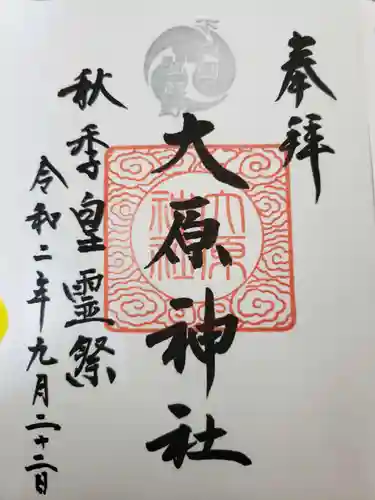 奉拝
大原神社
大原
神社
秋季皇霊祭
令和二年九月二十二日